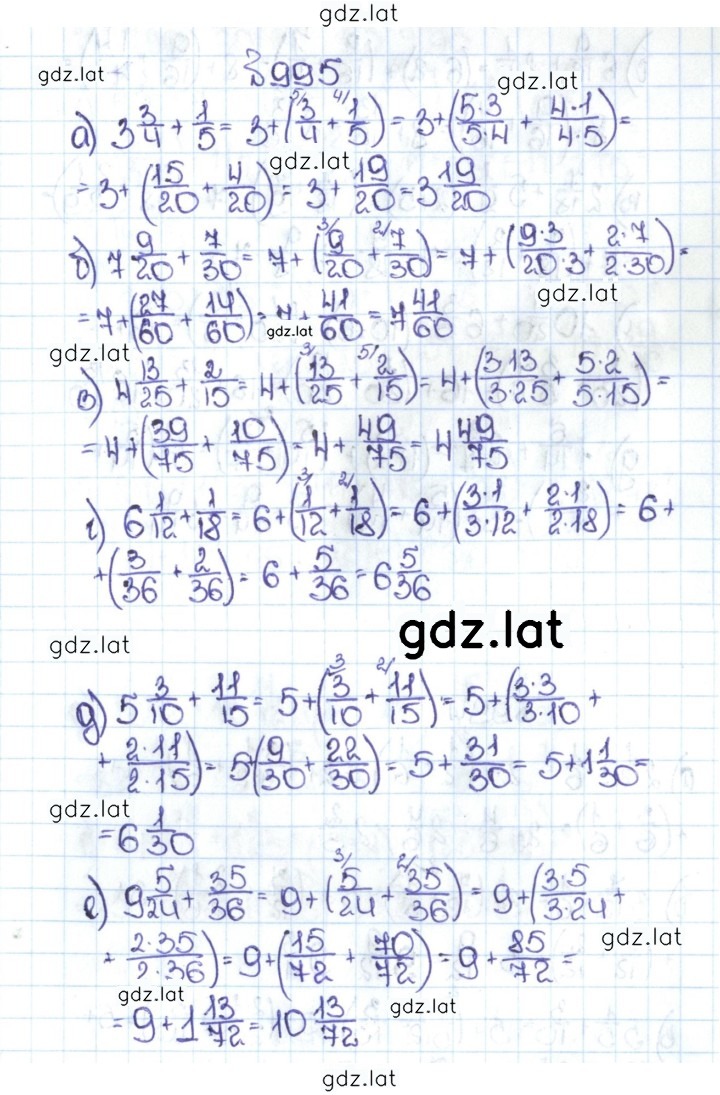 gdz.lat
gdz.lat
№995
gdz.lat
а) 3 3/4 + 1/5 = 3+(5/ 3/4 + 4/ 1/5) = 3+(5·3/5·4 + 4·1/4·5) =
gdz.lat
= 3+(15/20 + 4/20) = 3+ 19/20 = 3 19/20
б) 7 9/20 + 7/30 = 7+(3/ 9/20 + 2/ 7/30) = 7+(9·3/20·3 + 2·7/2·30) =
gdz.lat
= 7+(27/60 + 14/60) = 7+ 41/60 = 7 41/60
gdz.lat
gdz.lat
в) 4 13/25 + 2/15 = 4+(3/ 13/25 + 5/ 2/15) = 4+(3·13/3·25 + 5·2/5·15) =
= 4+(39/75 + 10/75) = 4+ 49/75 = 4 49/75
г) 6 1/12 + 1/18 = 6+(3/ 1/12 + 2/ 1/18) = 6+(3·1/3·12 + 2·1/2·18) = 6+
+(3/36 + 2/36) = 6+ 5/36 = 6 5/36
gdz.lat
gdz.lat
д) 5 3/10 + 11/15 = 5+(3/ 3/10 + 2/ 11/15) = 5+(3·3/3·10 +
+ 2·11/2·15) = 5(9/30 + 22/30) = 5+ 31/30 = 5+1 1/30 =
gdz.lat
= 6 1/30
е) 9 5/24 + 35/36 = 9+(3/ 5/24 + 2/ 35/36) = 9+(3·5/3·24 +
gdz.lat
+ 2·35/2·36) = 9+(15/72 + 70/72) = 9+ 85/72 =
gdz.lat
gdz.lat
= 9+1 13/72 = 10 13/72
gdz.lat